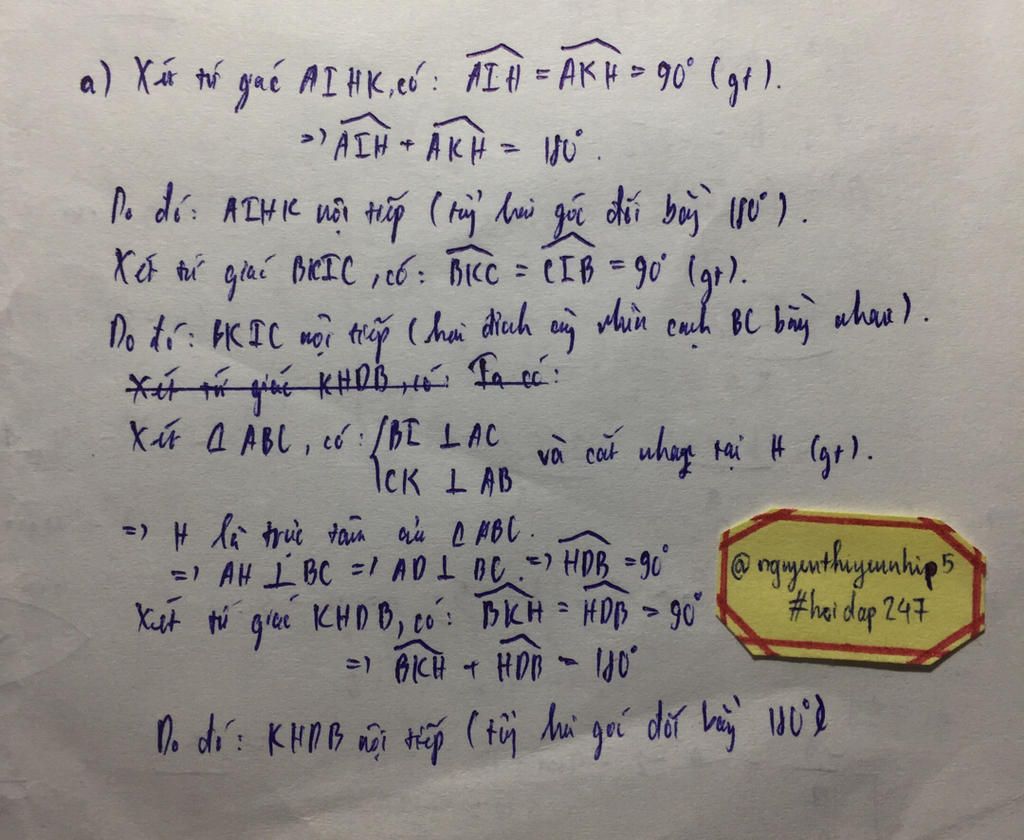 a) Xét tứ giác AIHK, có: AIH = AKH = 90° (gt).
=> AIH + AKH = 180°.
Do đó: AIHK nội tiếp (tổng hai góc đối bằng 180°).
Xét tứ giác BKIC, có: BKC = CIB = 90° (gt).
Do đó: BKIC nội tiếp (hai đỉnh cùng nhìn cạnh BC bằng nhau).
Xét tứ giác KHDB, có: Ta có:
Xét Δ ABC, có: { BI ⊥ AC và cắt nhau tại H (gt).
CK ⊥ AB
=> H là trực tâm của Δ ABC.
=> AH ⊥ BC => AD ⊥ BC. => HDB = 90°
Xét tứ giác KHDB, có: BKH = HDB = 90°
=> BKH + HDB = 180°
Do đó: KHDB nội tiếp (tổng hai góc đối bằng 180°)
@nguyenthiyeunhip5
#hoidap247